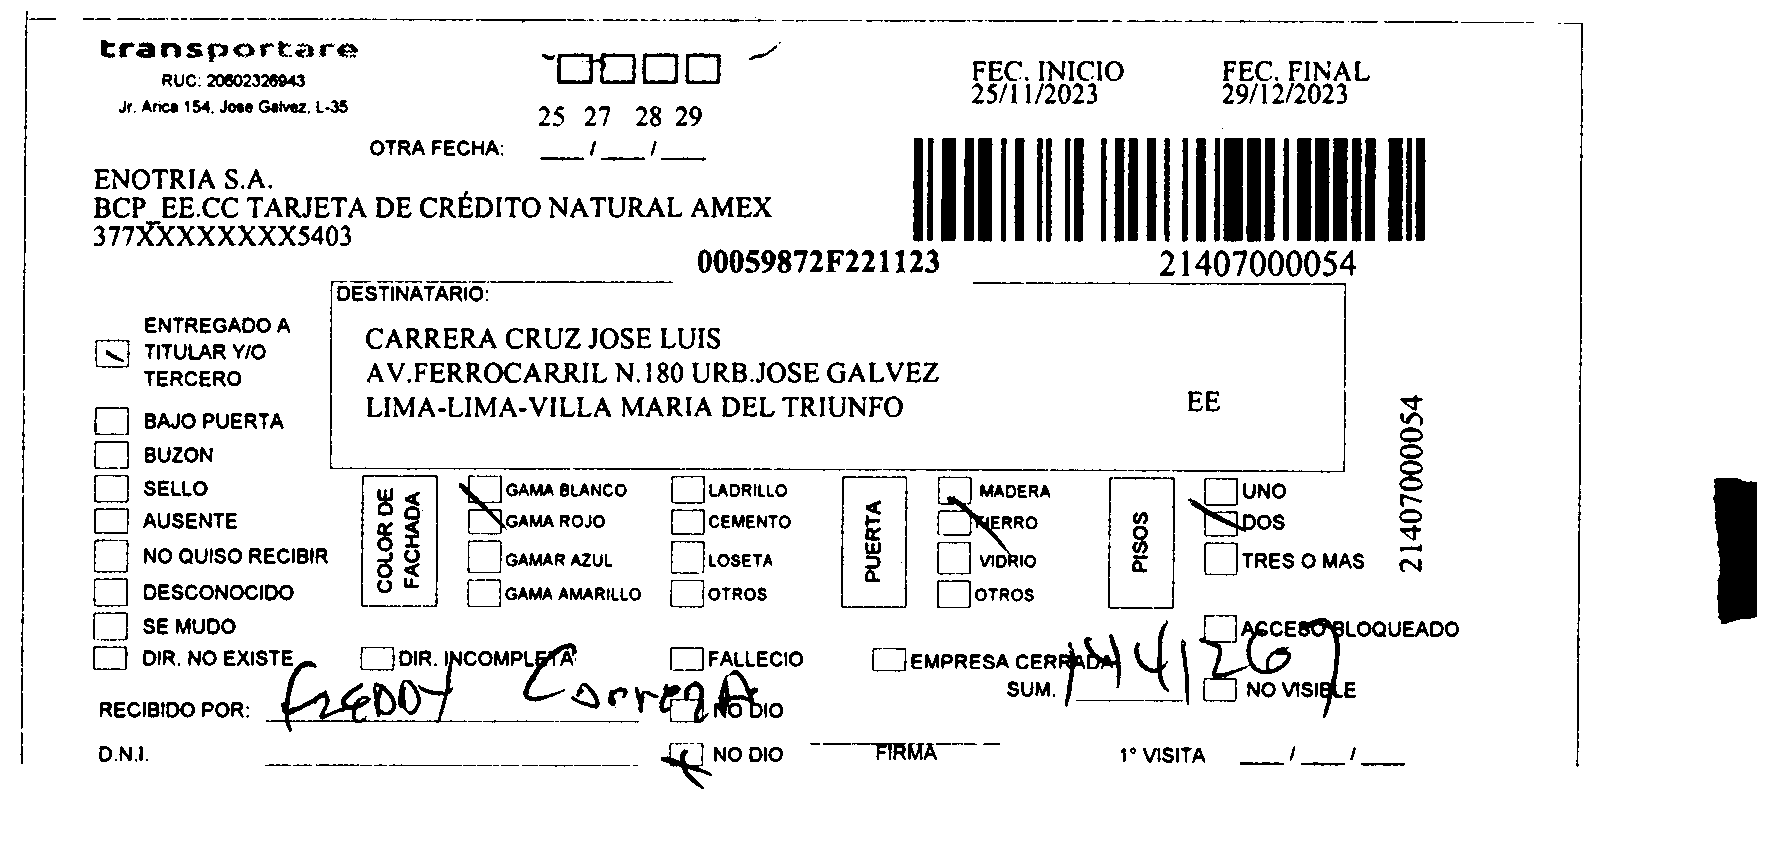 transportare
RUC: 20602326943
Jr. Arica 154, Jose Galvez, L-35
25 27 28 29
OTRA FECHA: ___/___/___
FEC. INICIO FEC. FINAL
25/11/2023 29/12/2023
ENOTRIA S.A.
BCP_EE.CC TARJETA DE CRÉDITO NATURAL AMEX
377XXXXXXXXX5403
00059872F221123 21407000054
DESTINATARIO:
CARRERA CRUZ JOSE LUIS
AV.FERROCARRIL N.180 URB.JOSE GALVEZ
LIMA-LIMA-VILLA MARIA DEL TRIUNFO EE
21407000054
ENTREGADO A
TITULAR Y/O
TERCERO
BAJO PUERTA
BUZON
SELLO
AUSENTE
NO QUISO RECIBIR
DESCONOCIDO
SE MUDO
DIR. NO EXISTE
COLOR DE
FACHADA
GAMA BLANCO
GAMA ROJO
GAMAR AZUL
GAMA AMARILLO
LADRILLO
CEMENTO
LOSETA
OTROS
PUERTA
MADERA
FIERRO
VIDRIO
OTROS
PISOS
UNO
DOS
TRES O MAS
ACCESO BLOQUEADO
DIR. INCOMPLETA FALLECIO EMPRESA CERRADA
SUM. 1441267 NO VISIBLE
RECIBIDO POR: FREDDY NO DIO
D.N.I. NO DIO FIRMA 1° VISITA ___/___/___